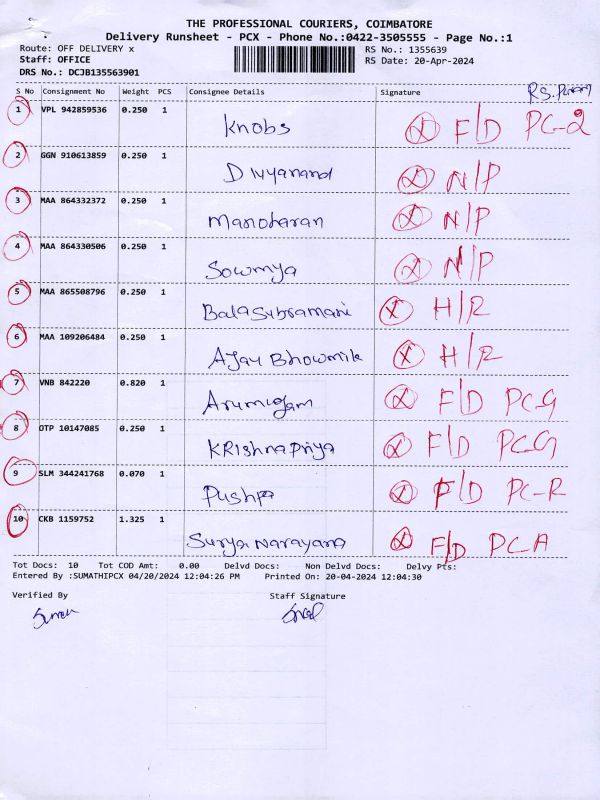 THE PROFESSIONAL COURIERS, COIMBATORE
Delivery Runsheet - PCX - Phone No.:0422-3505555 - Page No.:1
Route: OFF DELIVERY x RS No.: 1355639
Staff: OFFICE RS Date: 20-Apr-2024
DRS No.: DCJB135563901
S No Consignment No Weight PCS Consignee Details Signature
1 VPL 942859536 0.250 1 Knobs X F/D PC-2
2 GGN 910613859 0.250 1 Divyanand X N/P
3 MAA 864332372 0.250 1 Manoharan X N/P
4 MAA 864330506 0.250 1 Sowmya X N/P
5 MAA 865508796 0.250 1 Balasubramani X H/R
6 MAA 109206484 0.250 1 Ajay Bhowmik X H/R
7 VNB 842220 0.820 1 Arumugam X F/D PCG
8 OTP 10147085 0.250 1 KRishnapriya X F/D PCG
9 SLM 344241768 0.070 1 Pushpa X F/D PC-R
10 CKB 1159752 1.325 1 Surya Narayana X F/D PCA
Tot Docs: 10 Tot COD Amt: 0.00 Delvd Docs: Non Delvd Docs: Delvy Pts:
Entered By :SUMATHIPCX 04/20/2024 12:04:26 PM Printed On: 20-04-2024 12:04:30
Verified By Staff Signature